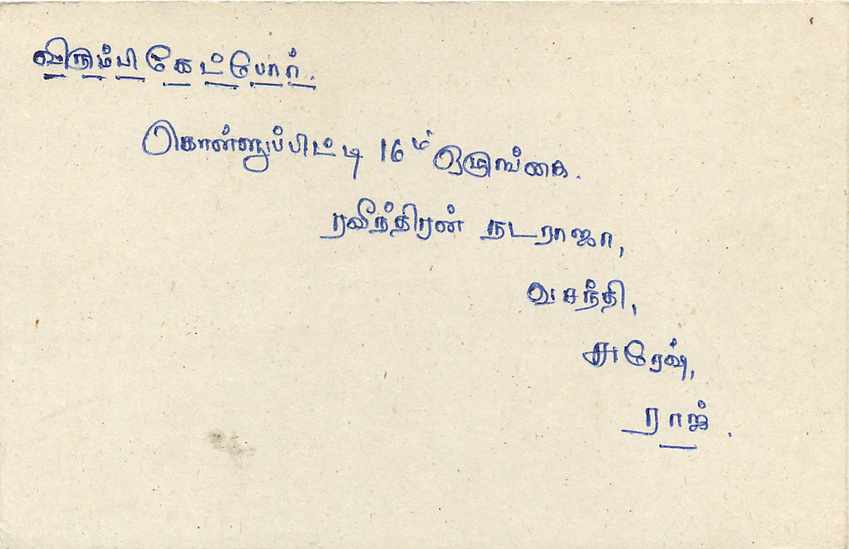 விரும்பி கேட்போர்.
கொள்ளுப்பிட்டி 16ம் ஒழுங்கை.
ரவீந்திரன் நடராஜா,
வசந்தி,
சுரேஷ்,
ராஜ்.